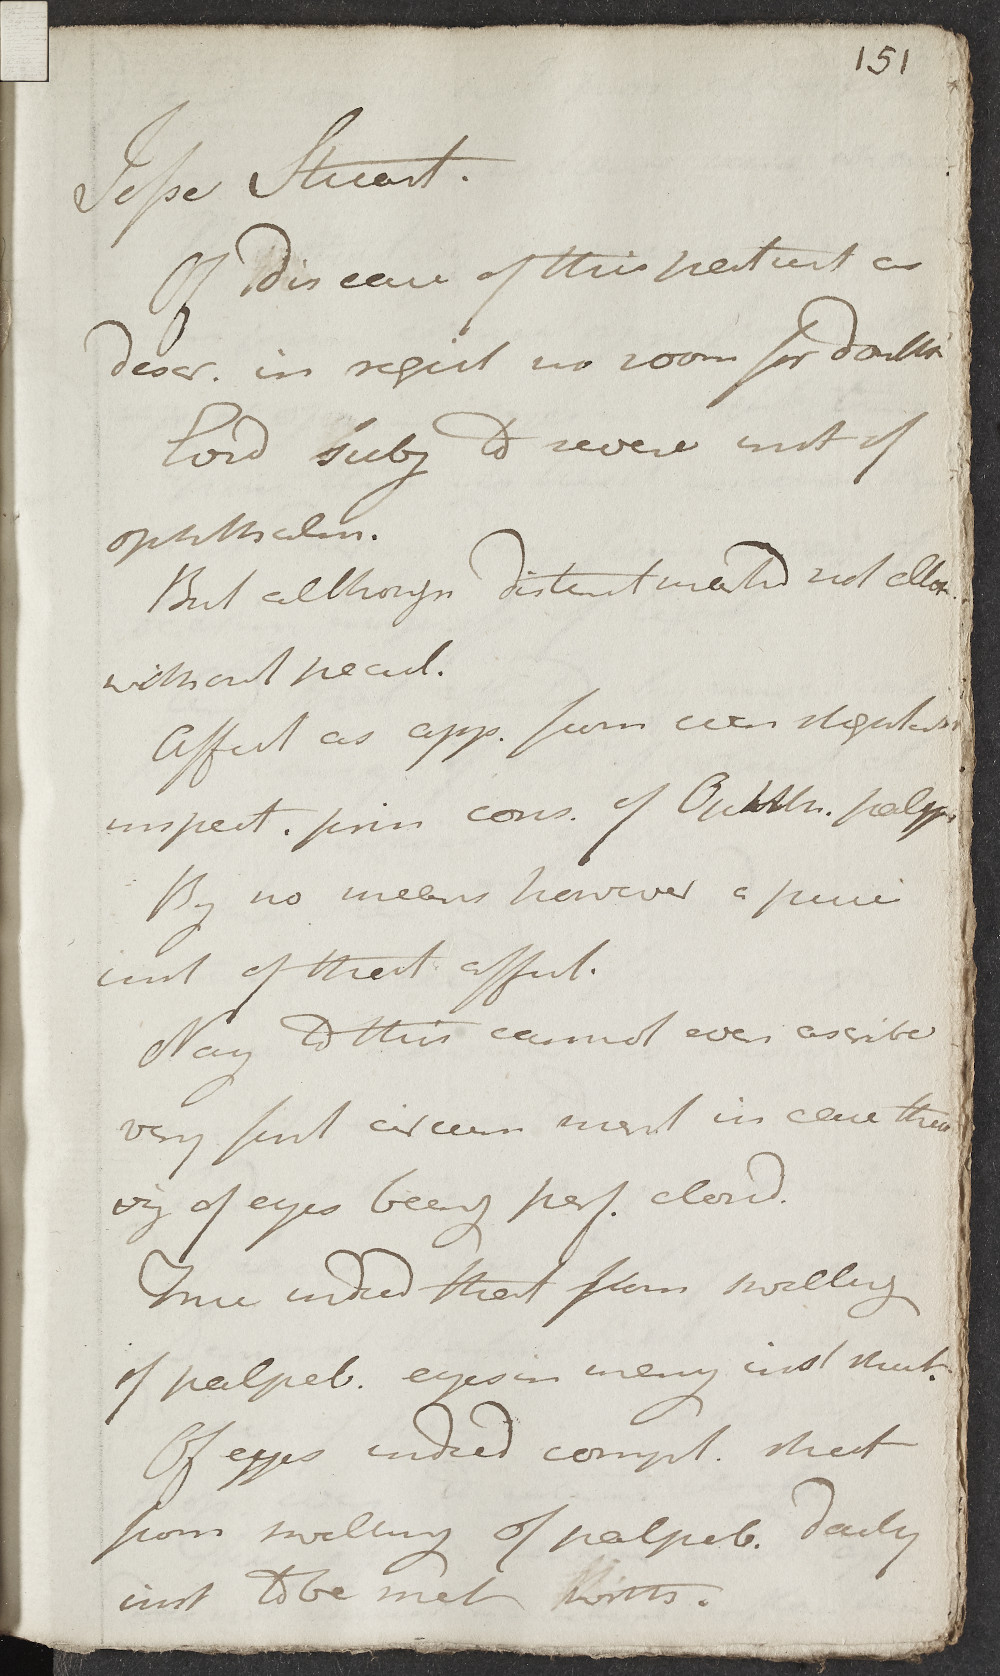 151
Jesse Stuart.
Of disease of this patient as
descr. in regist no room for doubt
Lord subj to severe inst of
ophthalm.
But although distinct marked not altog.
without pecul.
Affect as app. from even slightest
inspect. prin cons. of Ophth. palpeb
By no means however a pure
inst of that affect.
Nay to this cannot even ascribe
very first circum ment in case
viz of eyes being perf. closd.
True indeed that from swelling
of palpeb. eyes in many inst shut.
Of eyes indeed compl. shut
from swelling of palpeb. daily
inst to be met with.